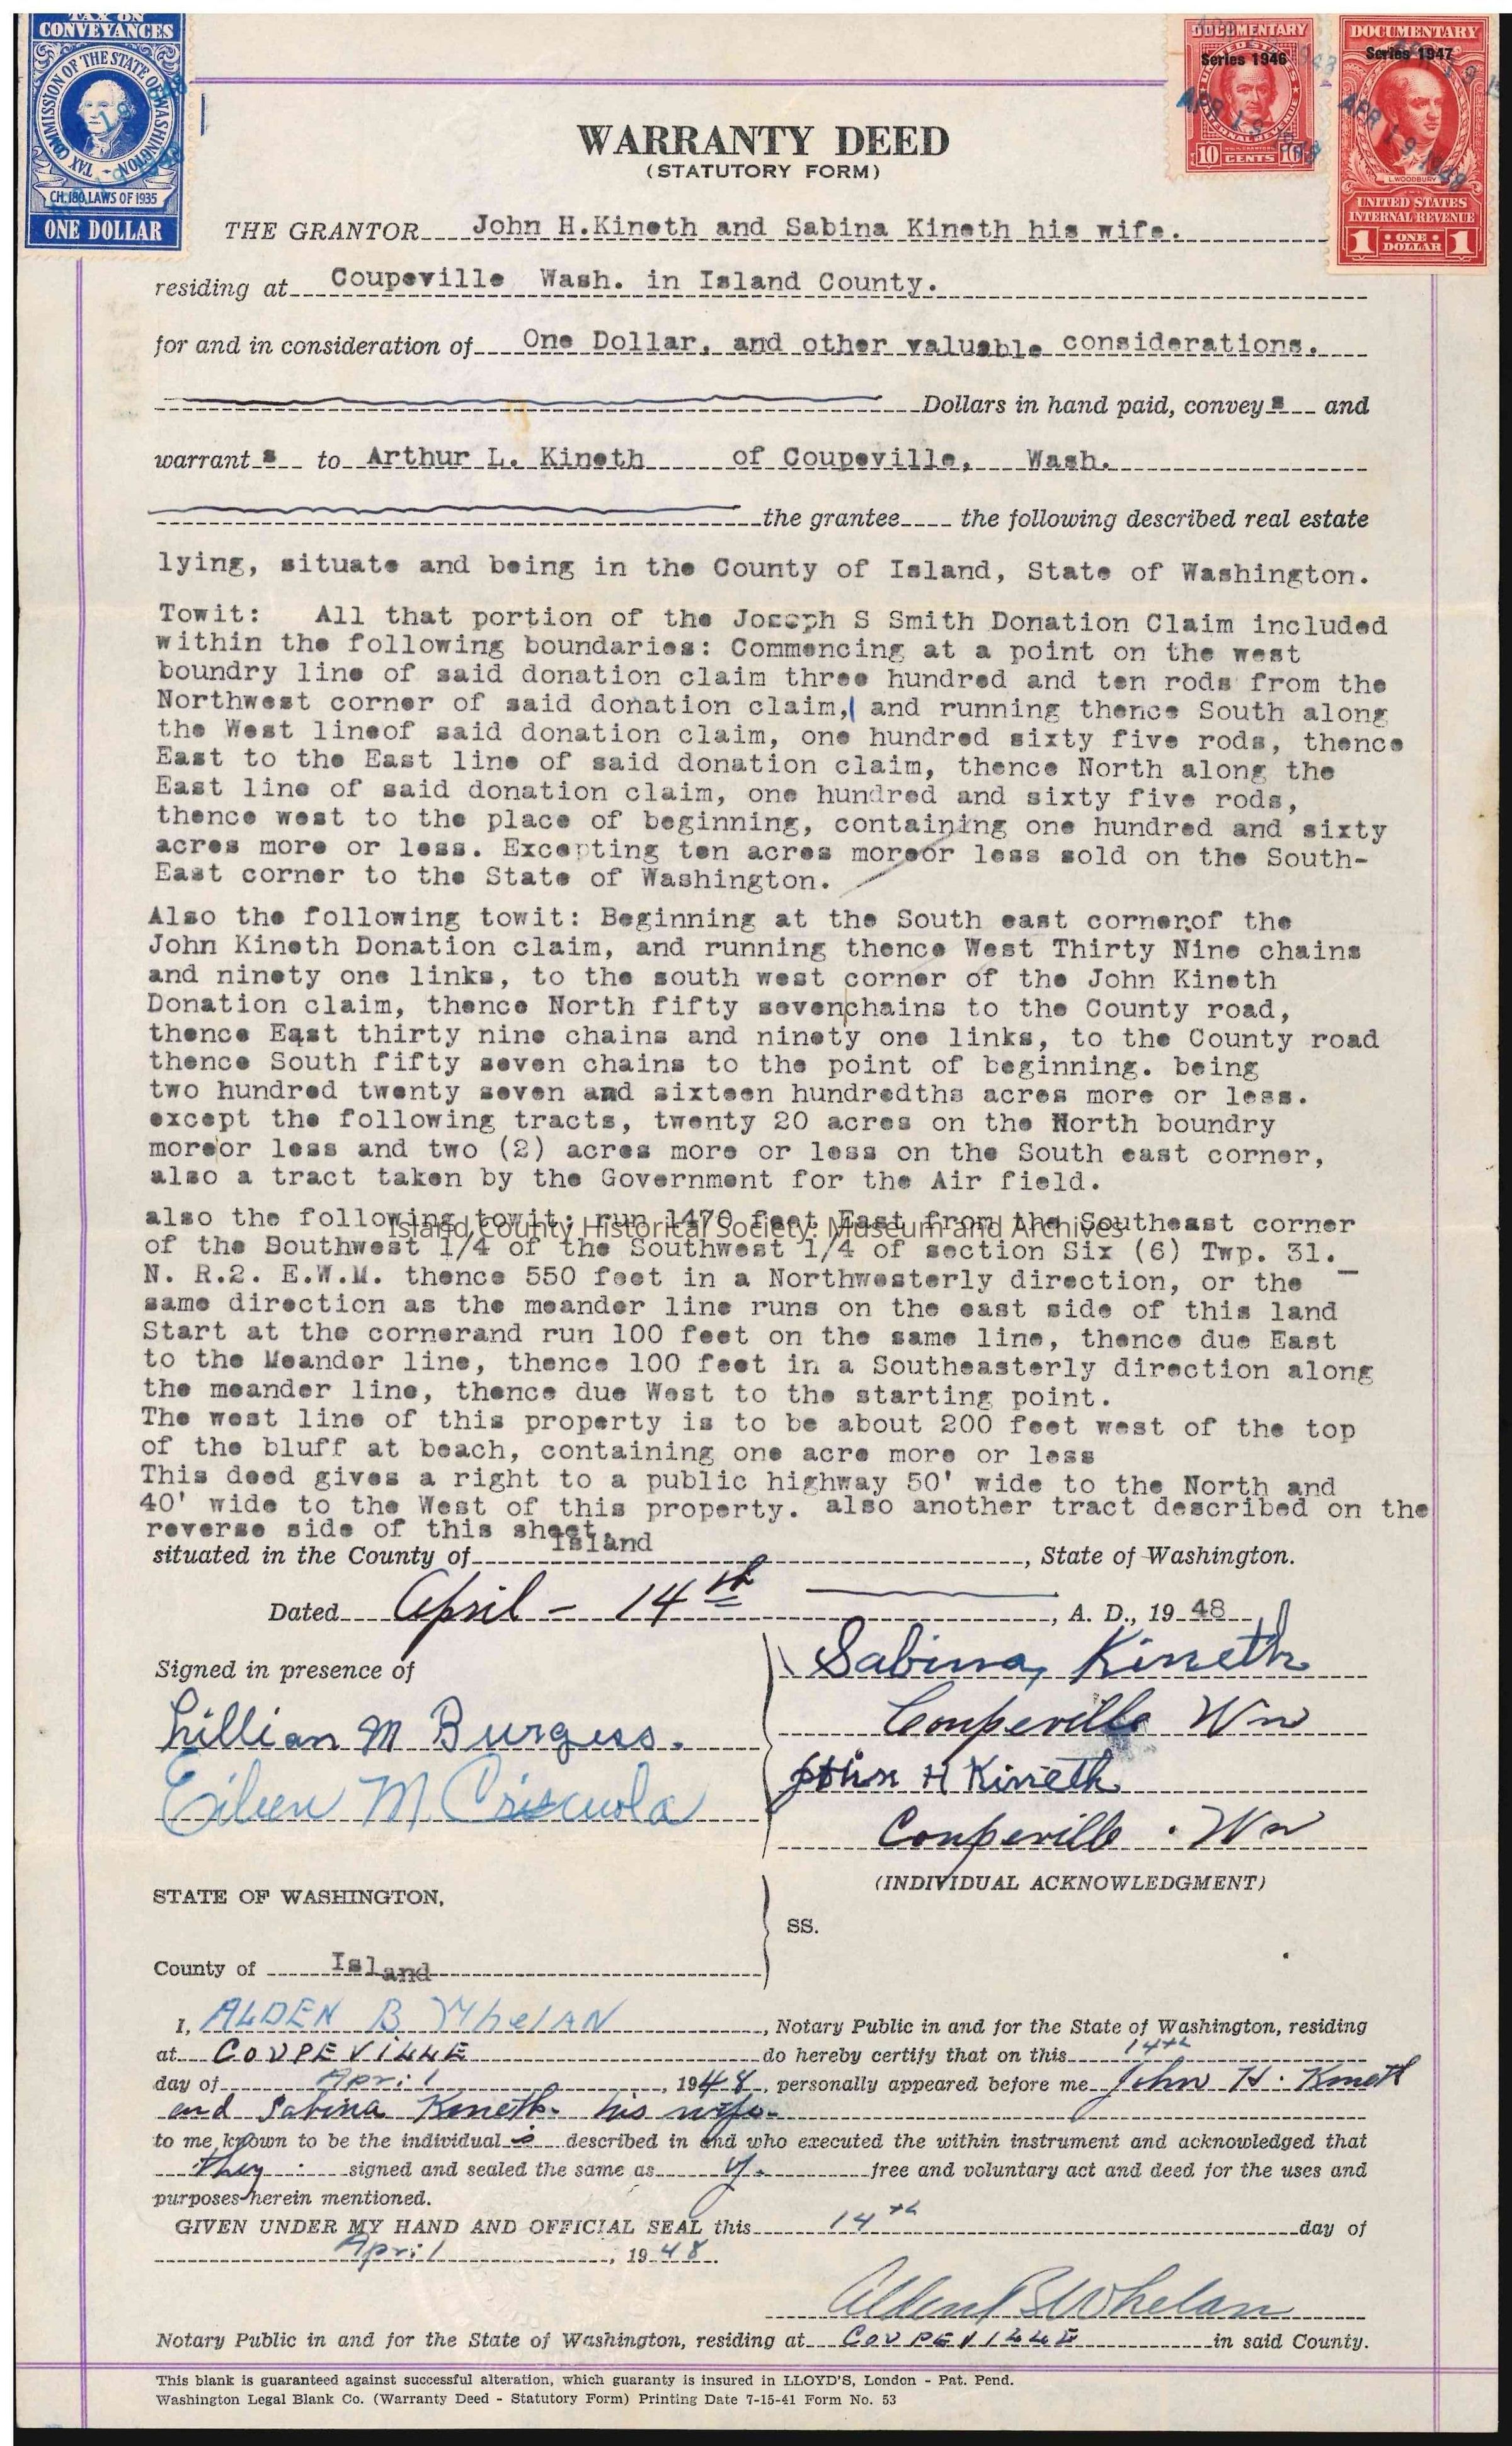 TAX ON
CONVEYANCES
TAX COMMISSION OF THE STATE OF WASHINGTON
CH. 180, LAWS OF 1935
ONE DOLLAR
DOCUMENTARY
Series 1946
APR 19 1948
10 CENTS 10
DOCUMENTARY
Series 1947
APR 19 1948
L. WOODBURY
UNITED STATES
INTERNAL REVENUE
1 ONE DOLLAR 1
WARRANTY DEED
(STATUTORY FORM)
THE GRANTOR John H.Kineth and Sabina Kineth his wife.
residing at Coupeville Wash. in Island County.
for and in consideration of One Dollar, and other valuable considerations.
Dollars in hand paid, convey s and
warrant s to Arthur L. Kineth of Coupeville, Wash.
the grantee the following described real estate
lying, situate and being in the County of Island, State of Washington.
Towit: All that portion of the Joseph S Smith Donation Claim included
within the following boundaries: Commencing at a point on the west
boundry line of said donation claim three hundred and ten rods from the
Northwest corner of said donation claim, and running thence South along
the West lineof said donation claim, one hundred sixty five rods, thence
East to the East line of said donation claim, thence North along the
East line of said donation claim, one hundred and sixty five rods,
thence west to the place of beginning, containing one hundred and sixty
acres more or less. Excepting ten acres moreor less sold on the South-
East corner to the State of Washington.
Also the following towit: Beginning at the South east cornerof the
John Kineth Donation claim, and running thence West Thirty Nine chains
and ninety one links, to the south west corner of the John Kineth
Donation claim, thence North fifty sevenchains to the County road,
thence East thirty nine chains and ninety one links, to the County road
thence South fifty seven chains to the point of beginning. being
two hundred twenty seven and sixteen hundredths acres more or less.
except the following tracts, twenty 20 acres on the North boundry
moreor less and two (2) acres more or less on the South east corner,
also a tract taken by the Government for the Air field.
also the following towit: run 1470 feet East from the Southeast corner
Island County Historical Society. Museum and Archives
of the Southwest 1/4 of the Southwest 1/4 of section Six (6) Twp. 31.
N. R.2. E.W.M. thence 550 feet in a Northwesterly direction, or the
same direction as the meander line runs on the east side of this land
Start at the cornerand run 100 feet on the same line, thence due East
to the Meander line, thence 100 feet in a Southeasterly direction along
the meander line, thence due West to the starting point.
The west line of this property is to be about 200 feet west of the top
of the bluff at beach, containing one acre more or less
This deed gives a right to a public highway 50' wide to the North and
40' wide to the West of this property. also another tract described on the
reverse side of this sheet.
situated in the County of Island, State of Washington.
Dated April - 14th, A. D., 19 48
Signed in presence of
Sabina Kineth
Lillian M Burgess.
Coupeville Wn
Eileen M Criscuola
John H Kineth
Coupeville. Wn
(INDIVIDUAL ACKNOWLEDGMENT)
STATE OF WASHINGTON,
SS.
County of Island
I, ALDEN B Whelan, Notary Public in and for the State of Washington, residing
at COUPEVILLE do hereby certify that on this 14th
day of April, 1948, personally appeared before me John H. Kineth
and Sabina Kineth his wife
to me known to be the individual s described in and who executed the within instrument and acknowledged that
they signed and sealed the same as free and voluntary act and deed for the uses and
purposes herein mentioned.
GIVEN UNDER MY HAND AND OFFICIAL SEAL this 14th day of
April, 1948.
Alden B Whelan
Notary Public in and for the State of Washington, residing at COUPEVILLE in said County.
This blank is guaranteed against successful alteration, which guaranty is insured in LLOYD'S, London - Pat. Pend.
Washington Legal Blank Co. (Warranty Deed - Statutory Form) Printing Date 7-15-41 Form No. 53